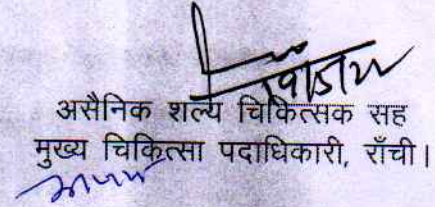 असैनिक शल्य चिकित्सक सह
मुख्य चिकित्सा पदाधिकारी, राँची।